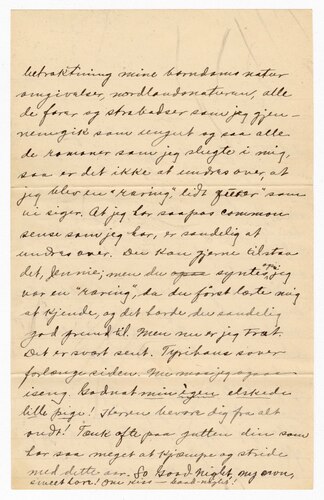 betraktning mine barndoms natur
omgivelser, nordlandsnaturen, alle
de farer og strabadser som jeg gjen-
nemgik som ungut og saa alle
de romaner som jeg slugte i mig,
saa er det ikke at undres over, at
jeg blev en "raring," lidt som
vi siger. At jeg har saapas common
sense som jeg har, er sandelig at
undres over. Du kan gjerne tilstaa
det, Jennie, men du syntes jeg
var en "raring", da du först lærte mig
at kjende, og det havde du sandelig
god grund til. Men nu er jeg træt.
Det er svært sent. sover
forlænge siden. Nu maa jeg
iseng. Godnat min egen elskede
lille pige! Herren bevare dig fra alt
ondt! Tænk ofte paa gutten din som
har saa meget at kjæmpe og stride
med dette aar. So Good Night, my own,
sweet love! One kiss —